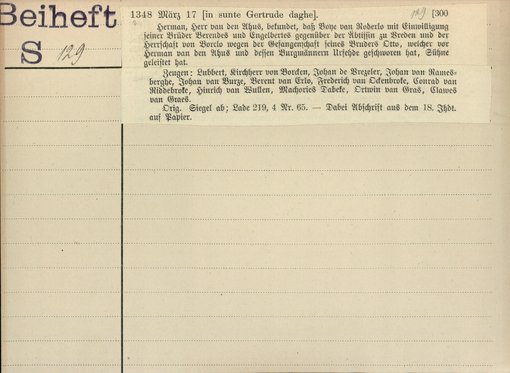 Beiheft
S 129
1348 März 17 [in sunte Gertrude daghe]. 129 [300
Herman, Herr van den Ahus, bekundet, daß Boye van Roderlo mit Einwilligung
seiner Brüder Berendes und Engelbertes gegenüber der Äbtissin zu Vreden und der
Herrschaft von Borclo wegen der Gefangenschaft seines Bruders Otto, welcher vor
Herman van den Ahus und dessen Burgmännern Ursehde geschworen hat, Sühne
geleistet hat.
Zeugen: Lubbert, Kirchherr von Borcken, Johan de Vrezeler, Johan van Rames-
berghe, Johan van Burze, Berent van Erlo, Frederich van Ockenbroke, Conrad van
Riddebroke, Hinrich van Wullen, Machories Dabeke, Ortwin van Gras, Clawes
van Graes.
Orig. Siegel ab; Lade 219, 4 Nr. 65. — Dabei Abschrift aus dem 18. Jhdt.
auf Papier.